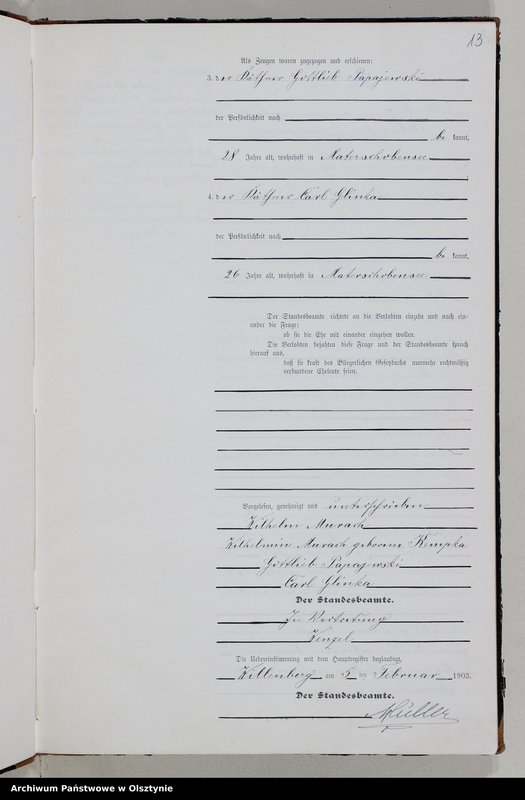 13
Als Zeugen waren zugezogen und erschienen:
3. der Käthner Gottlieb Papajewski
der Persönlichkeit nach
be kannt,
28 Jahre alt, wohnhaft in Materschobensee
4. der Käthner Carl Glinka
der Persönlichkeit nach
be kannt,
26 Jahre alt, wohnhaft in Materschobensee
Der Standesbeamte richtete an die Verlobten einzeln und nach ein-
ander die Frage:
ob sie die Ehe mit einander eingehen wollen.
Die Verlobten bejahten diese Frage und der Standesbeamte sprach
hierauf aus,
daß sie kraft des Bürgerlichen Gesetzbuchs nunmehr rechtmäßig
verbundene Eheleute seien.
Vorgelesen, genehmigt und unterschrieben
Wilhelm Murach
Wilhelmine Murach geborene Kempka
Gottlieb Papajewski
Carl Glinka
Der Standesbeamte.
In Vertretung
Wenzel
Die Uebereinstimmung mit dem Hauptregister beglaubigt.
Willenberg am 5 ten Februar 1903.
Der Standesbeamte.
Müller
Archiwum Państwowe w Olsztynie